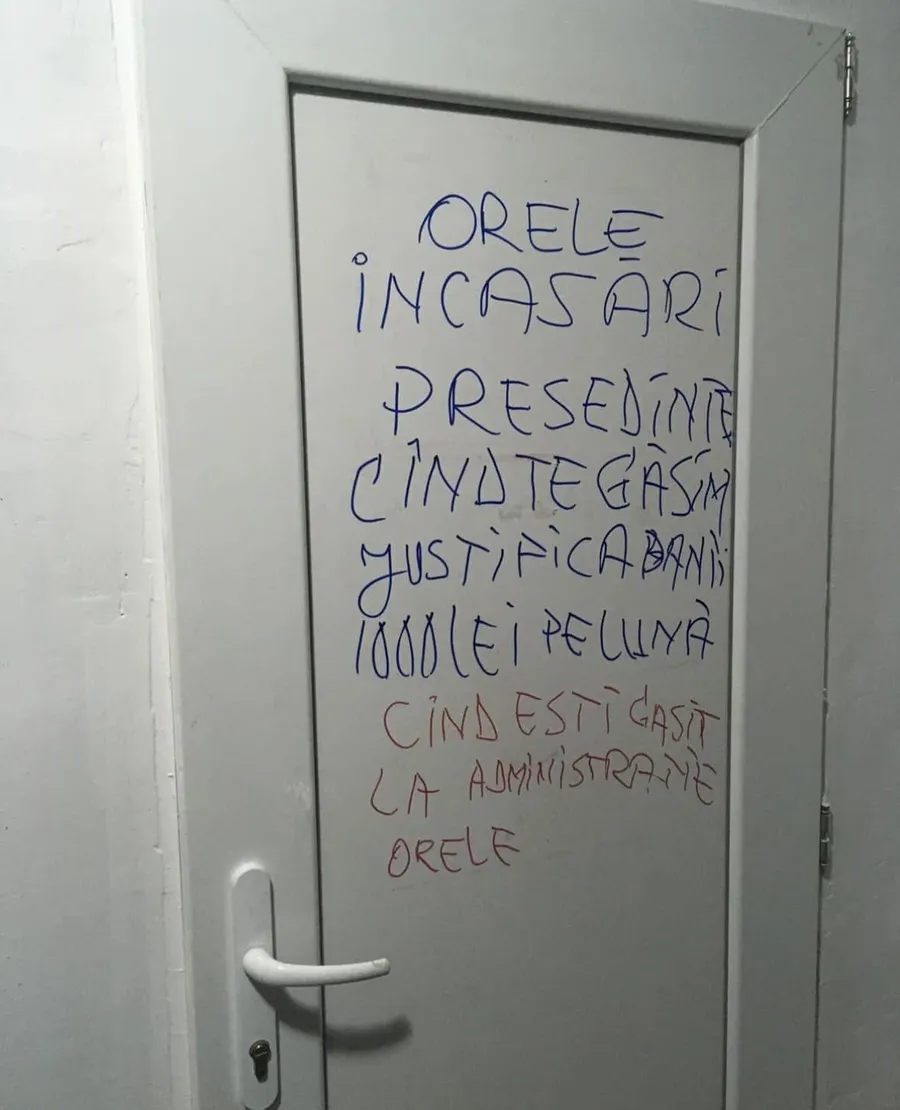 ORELE
ÎNCASĂRI
PRESEDINTE
CÎND TE GĂSIM
JUSTIFICA BANII
1000 LEI PE LUNĂ
CÎND ESTI GASIT
LA ADMINISTRAȚIE
ORELE